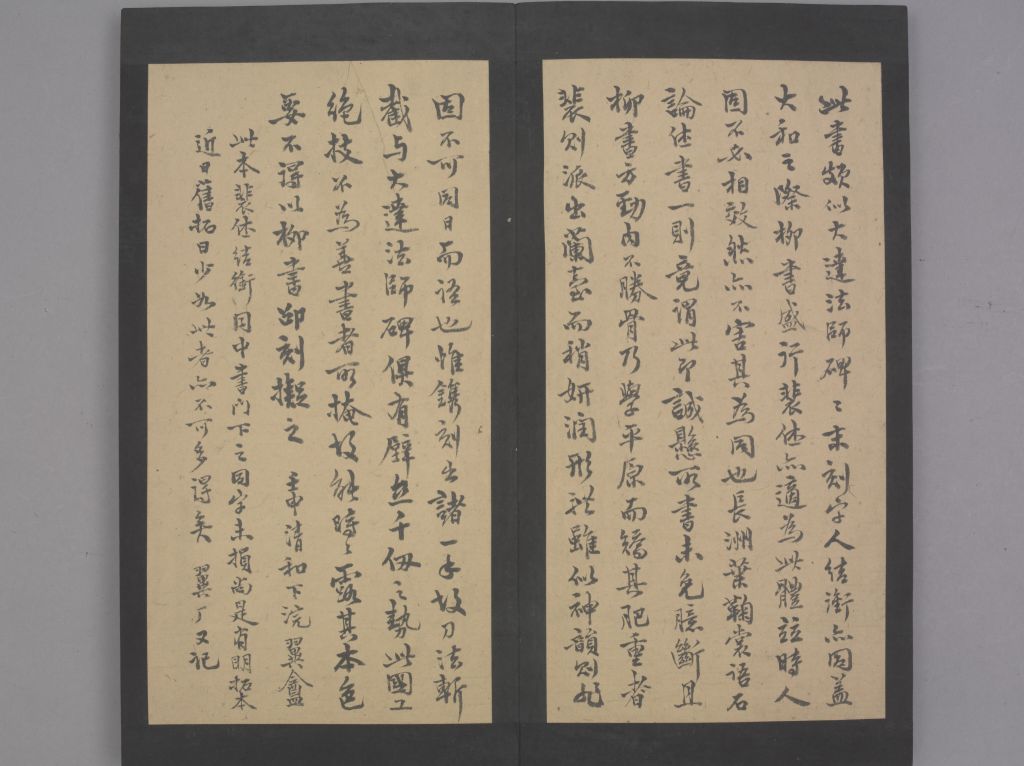 此書頗似大達法師碑〻末刻字人結銜亦同蓋
大和之際柳書盛行裴休亦適為此體玆時人
固不必相效然亦不害其為同也長洲葉鞠裳語石
論休書一則竟謂此即誠懸所書未免臆斷且
柳書方勁內不勝骨乃學平原而矯其肥重者
裴則派出蘭臺而稍妍潤形雖似神韻則
固不可同日而語也惟鐫刻出諸一手故刀法斬
截与大達法師碑俱有壁立千仞之勢此國工
絕技不為善書者所掩故能時〻露其本色
要不得以柳書即刻擬之 壬申清和下浣翼盦
此本裴休結銜同中書門下之同字未損尚是有明拓本
近日舊拓日少如此者亦不可多得矣 翼厂又記